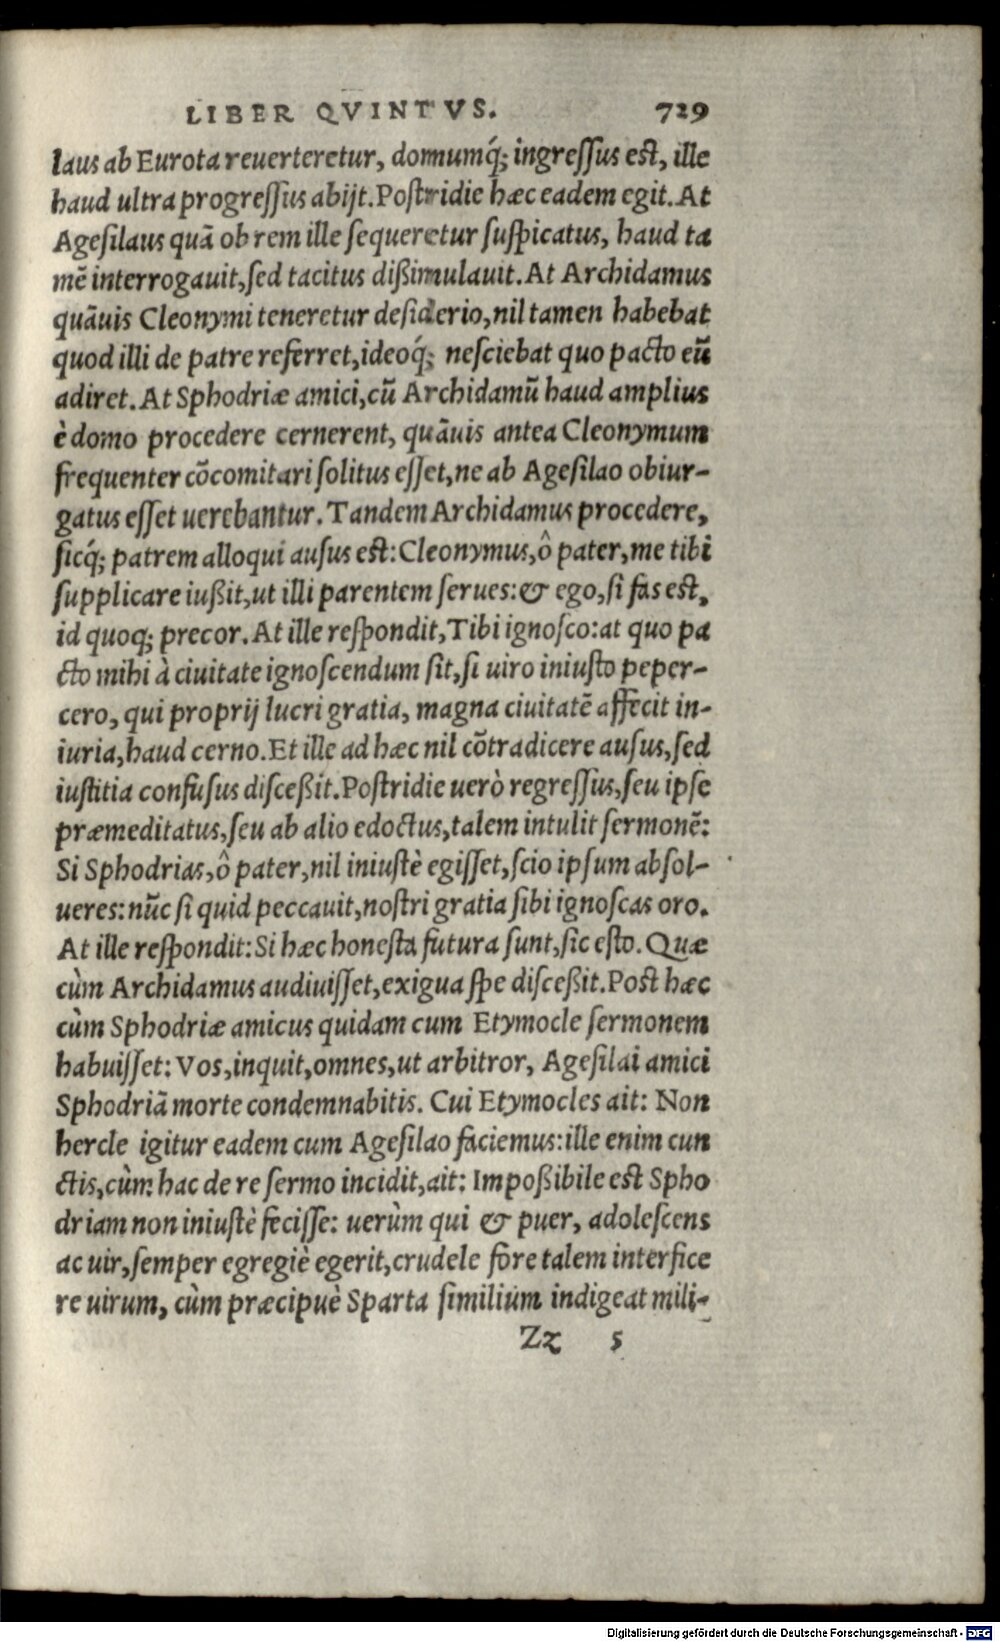 LIBER QVINTVS. 729
laus ab Eurota reuerteretur, domumq́; ingreſſus eſt, ille
haud ultra progreſſus abijt. Poſtridie hæc eadem egit. At
Ageſilaus quā ob rem ille ſequeretur ſuſpicatus, haud ta
mē interrogauit, ſed tacitus dißimulauit. At Archidamus
quāuis Cleonymi teneretur deſiderio, nil tamen habebat
quod illi de patre referret, ideoq́; neſciebat quo pacto eū
adiret. At Sphodriæ amici, cū Archidamū haud amplius
è domo procedere cernerent, quāuis antea Cleonymum
frequenter cōcomitari ſolitus eſſet, ne ab Ageſilao obiur-
gatus eſſet uerebantur. Tandem Archidamus procedere,
ſicq́; patrem alloqui auſus eſt: Cleonymus, ô pater, me tibi
ſupplicare iußit, ut illi parentem ſerues: & ego, ſi fas eſt,
id quoq; precor. At ille reſpondit, Tibi ignoſco: at quo pa
cto mihi à ciuitate ignoſcendum ſit, ſi uiro iniuſto peper-
cero, qui proprij lucri gratia, magna ciuitatē affecit in-
iuria, haud cerno. Et ille ad hæc nil cōtradicere auſus, ſed
iuſtitia confuſus diſceßit. Poſtridie uerò regreſſus, ſeu ipſe
præmeditatus, ſeu ab alio edoctus, talem intulit ſermonē:
Si Sphodrias, ô pater, nil iniuſtè egiſſet, ſcio ipſum abſol-
ueres: nūc ſi quid peccauit, noſtri gratia ſibi ignoſcas oro.
At ille reſpondit: Si hæc honeſta futura ſunt, ſic eſto. Quæ
cùm Archidamus audiuiſſet, exigua ſpe diſceßit. Poſt hæc
cùm Sphodriæ amicus quidam cum Etymocle ſermonem
habuiſſet: Vos, inquit, omnes, ut arbitror, Ageſilai amici
Sphodriā morte condemnabitis. Cui Etymocles ait: Non
hercle igitur eadem cum Ageſilao faciemus: ille enim cun
ctis, cùm hac de re ſermo incidit, ait: Impoßibile eſt Spho
driam non iniuſtè feciſſe: uerùm qui & puer, adoleſcens
ac uir, ſemper egregiè egerit, crudele fore talem interfice
re uirum, cùm præcipuè Sparta ſimilium indigeat mili-
Zz 5
Digitalisierung gefördert durch die Deutsche Forschungsgemeinschaft - DFG